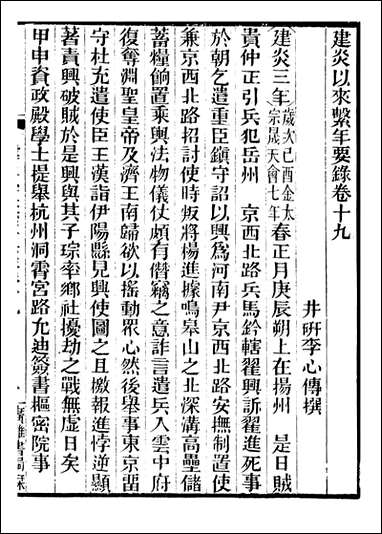 建炎以來繫年要錄卷十九
井硏李心傳撰
建炎三年歲次己酉金太宗晟天會七年春正月庚辰朔上在揚州　是日賊
貴仲正引兵犯岳州　京西北路兵馬鈐轄翟興訴翟進死事
於朝乞遣重臣鎮守詔以興爲河南尹京西北路安撫制置使
兼京西北路招討使時叛將楊進據鳴皋山之北深溝高壘儲
蓄糧餉置乘輿法物儀仗頗有僭竊之意詐言遣兵入雲中府
復奪淵聖皇帝及濟王南歸欲以搖動眾心然後舉事東京留
守杜充遣使臣王漢詣伊陽縣見興使圖之且檄報進悖逆顯
著責興破賊於是興與其子琮率鄉社擾劫之戰無虛日矣
甲申資政殿學士提舉杭州洞霄宮路允迪簽書樞密院事
廣雅書局